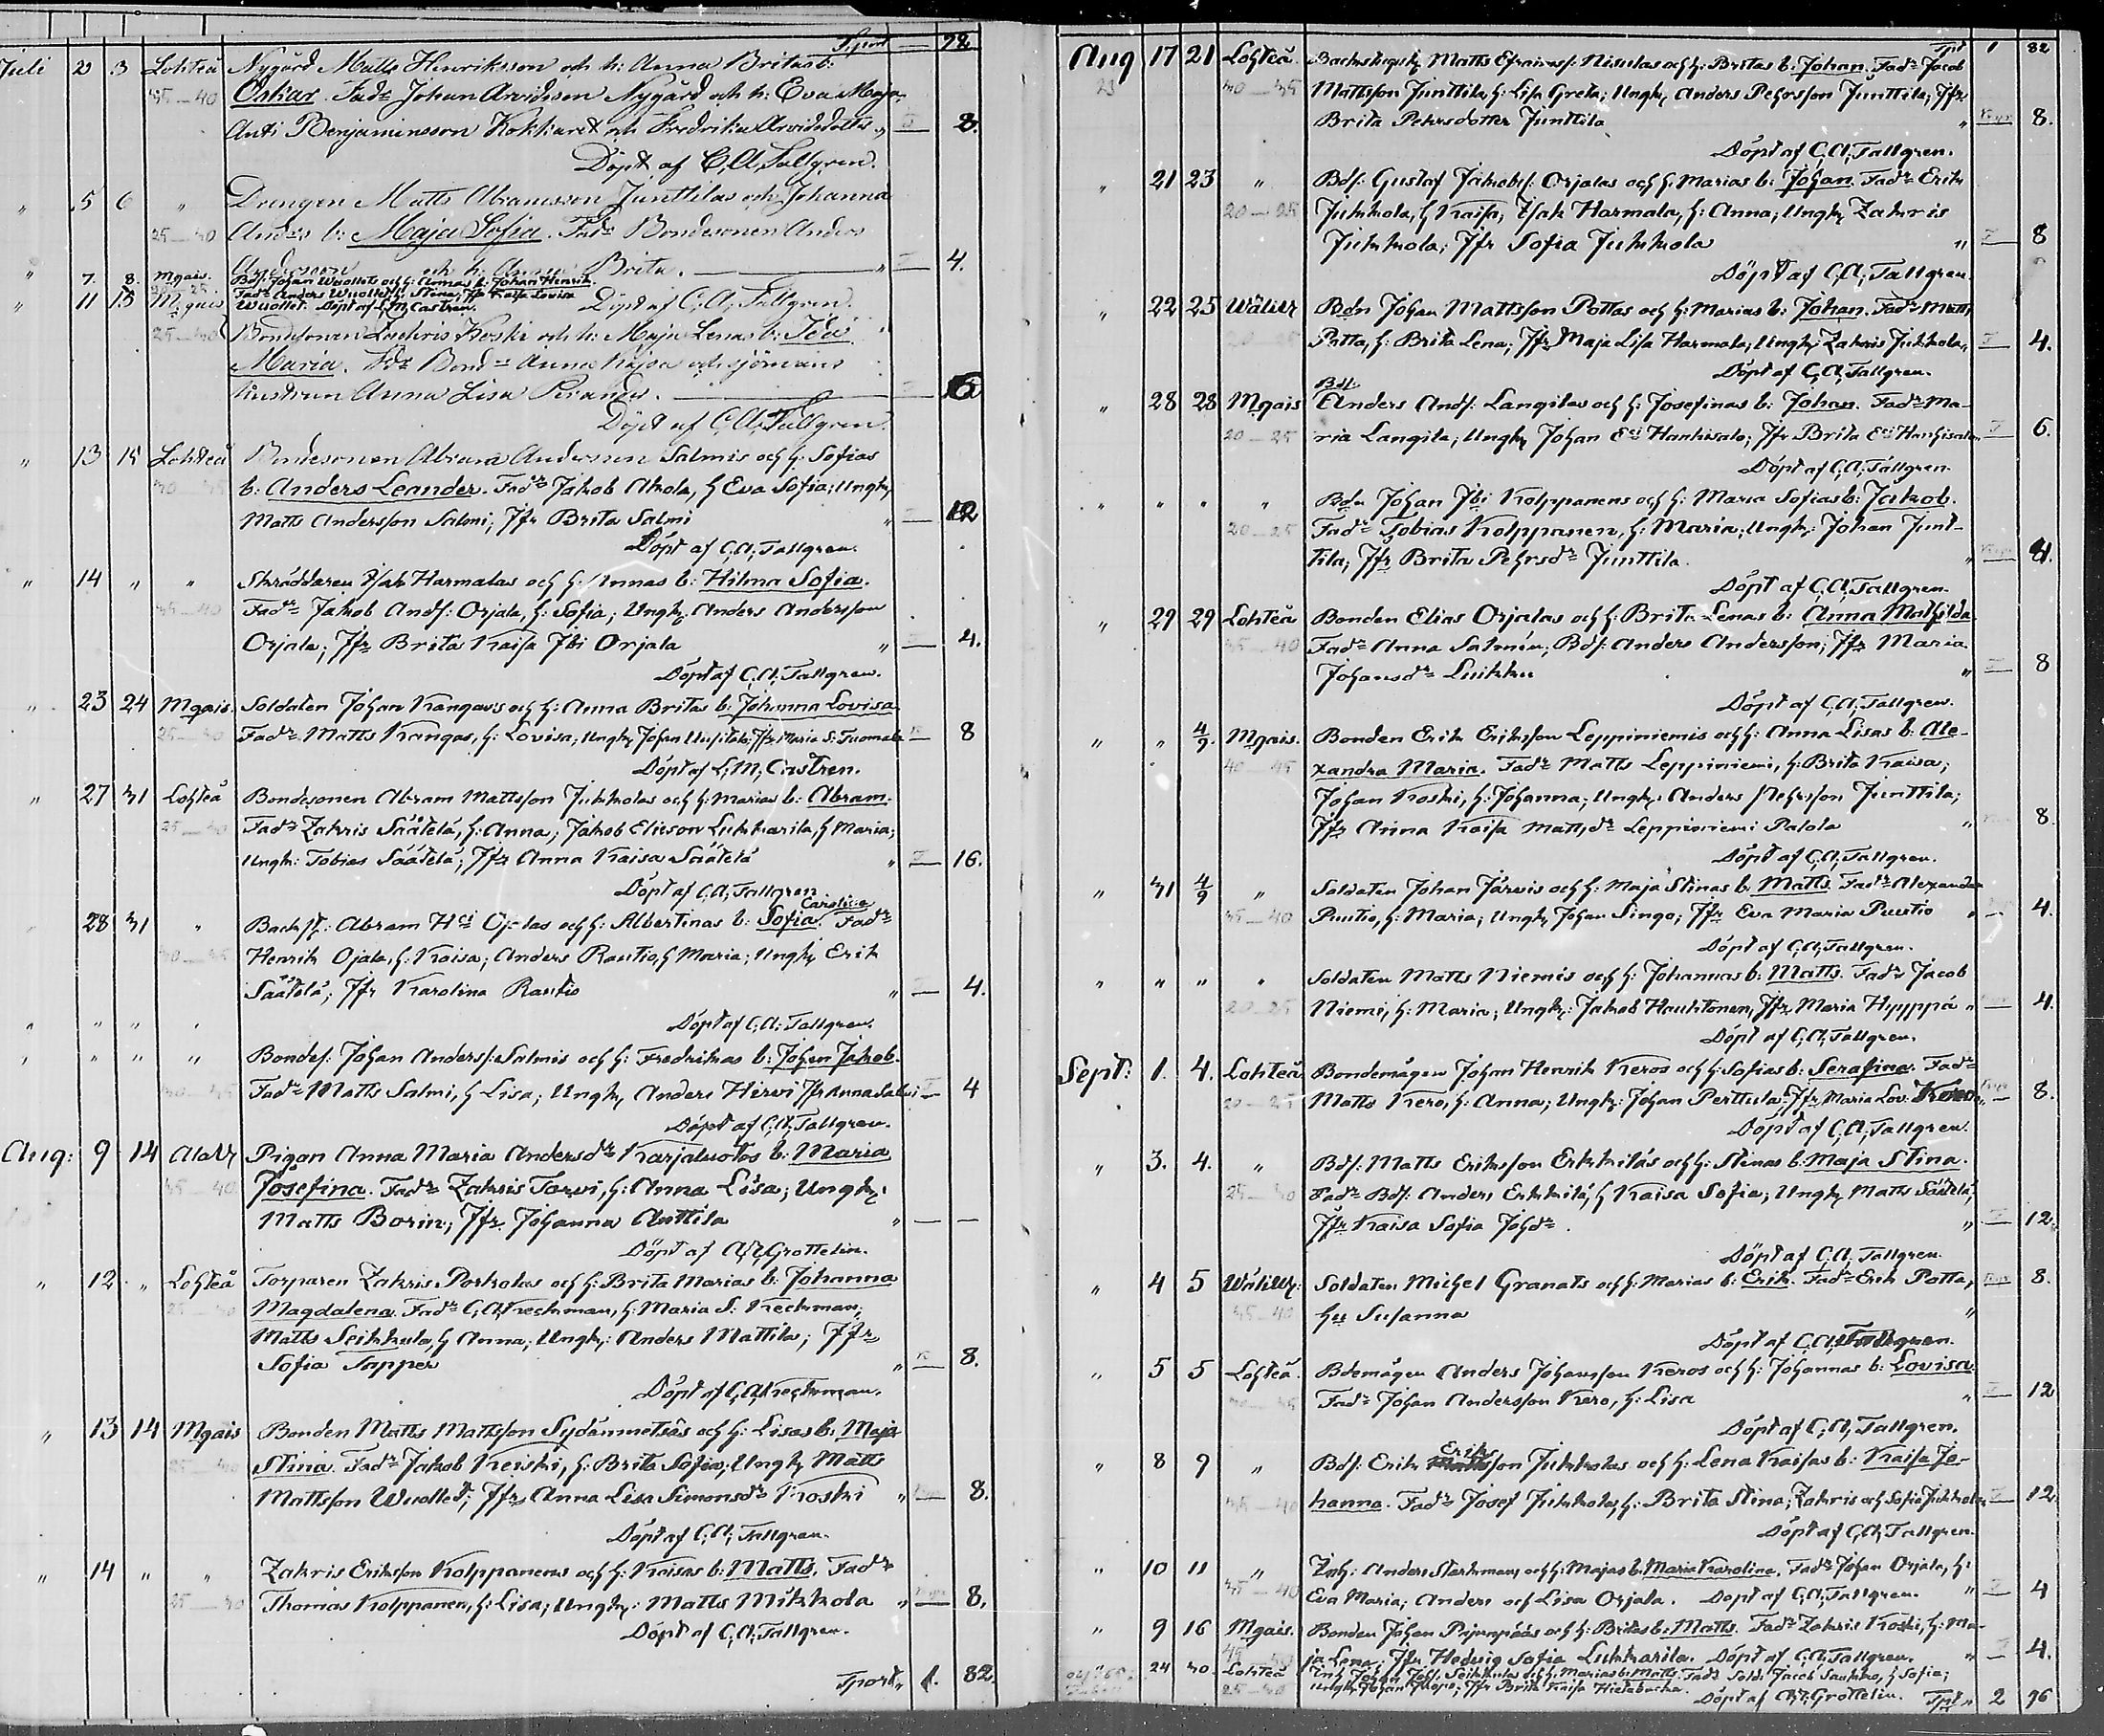 Tsport — 72
Juli 2 3 Lohteå Nygård Matts Henriksson och h: Anna Britas b:
35—40 Oskar. Fadr Johan Arvidsson Nygård och h: Eva Maja,
Anti Benjaminsson Kokkaret och Fredrika Arvidsdotter „ I — 8.
Döpt af C, A, Tallgren.
„ 5 6 „ Drengen Matts Abramsson Junttilas och Johanna
25—30 Andrs b: Maja Sofia. Fadr Bondesonen Anders
och h: Anna Brita. — „ I — 4.
„ 7. 8. Mgais. Bdf: Johan Wuollets och h: Annas b: Johan Henrik.
20—25 Fadr Anders Wuollet, h: Stina; Jfr Kaisa Lovisa
Wuollet. Döpt af L, M, Castren.
Döpt af C, A, Tallgren.
„ 11 13 Mgais
25—30 Bondesonen Zachris Koski och h: Maja Lenas b: Ida
Maria. Fdr Bond= Anna Kajsa och sjömans
hustrun Anna Lisa — I — 6
Döpt af C, A, Tallgren.
„ 13 15 Lohteå Bondesonen Abram Andersson Salmis och h: Sofias
30—35 b: Anders Leander. Fadr Jakob Akola, h Eva Sofia; Ungk,
Matts Andersson Salmi; Jfr Brita Salmi „ I — 12
Döpt af C, A, Tallgren.
„ 14 „ „ Skräddaren Isak Harmalas och h: Annas b: Hilma Sofia.
35—40 Fadr Jakob Andf: Orjala, h: Sofia; Ungk, Anders Andersson
Orjala; Jfr Brita Kaisa Jbi Orjala „ I — 4.
Döpt af C, A, Tallgren.
„ 23 24 Mgais. Soldaten Johan Kangavs och h: Anna Britas b: Johanna Lovisa
25—30 Fadr Matts Kangas, h: Lovisa, Ungk, Johan Uusitalo; Jfr Maria S: Tuomala — 8
Döpt af L, M, Castren.
„ 27 31 Lohteå Bondesonen Abram Mattsson Jukkolas och h: Marias b: Abram.
25—30 Fadr Zakris Säätelä, h: Anna; Jakob Elieson Lukkarila, h Maria;
Ungk: Tobias Säätelä; Jfr Anna Kaisa Säätelä „ I — 16.
Döpt af C, A, Tallgren
Carolina
„ 28 31 „ Backst: Abram Hci Ojalas och h: Albertinas b: Sofia. Fadr
30—35 Henrik Ojala, h: Kaisa; Anders Rautio, h Maria; Ungk, Erik
Säätelä; Jfr Karolina Rautio „ I — 4.
„ „ „ „
Döpt af C, A, Tallgren.
„ „ „ „ Bondes: Johan Anders: Salmis och h: Fredrikas b: Johan Jakob.
30—35 Fadr Matts Salmi, h Lisa; Ungk, Anders Hirvi Jfr Anna Salmi I — 4
Döpt af C, A, Tallgren.
Aug: 9 14 Alav Pigan Anna Maria Andersdr Karjaluotos b: Maria
35—40 Josefina. Fadr Zakris Torvi, h: Anna Lisa; Ungk,
Matts Borin; Jfr Johanna Anttila „ — —
Döpt af A, F, Grottelin.
„ 12 „ Lohteå Torparen Zakris Porkolas och h: Brita Marias b: Johanna
25—30 Magdalena. Fadr C, A, Keckman, h: Maria S: Keckman;
Matts Seikkula, h Anna; Ungk: Anders Mattila; Jfr
Sofia Tapper „ — 8.
Döpt af C, A, Keckman.
„ 13 14 Mgais Bonden Matts Mattsson Sydänmetsäs och h: Lisas b: Maja
25—30 Stina. Fadr Jakob Keiski, h: Brita Sofia; Ungk, Matts
Mattsson Wuollet; Jfr Anna Lisa Simonsdr Koski „ — 8.
Döpt af C, A, Tallgren.
„ 14 „ „ Zakris Eriksson Kolppanens och h: Kaisas b: Matts. Fadr
25—30 Thomas Kolppanen, h: Lisa; Ungk: Matts Mikkola „ — 8.
Döpt af C, A, Tallgren.
Tsport „ 1. 82.
Tpt 1 82
Aug 17 21 Lohteå. Backstugsk, Matts Efraims: Nisulas och h: Britas b: Johan. Fadr Jacob
23 30—35 Mattsson Junttila, h: Lisa Greta; Ungk, Anders Pehrsson Junttila; Jfr
Brita Pehrsdotter Junttila „ — 8.
Döpt af C, A, Tallgren.
„ 21 23 „ Bdf: Gustaf Jakobs: Orjalas och h: Marias b: Johan. Fadr Erik
20—25 Jukkola, h Kaisa; Isak Harmala, h: Anna; Ungk, Zakris
Jukkola; Jfr Sofia Jukkola „ I — 8
Döpt af C, A, Tallgren.
„ 22 25 Wälikk Bdn Johan Mattsson Pottas och h: Marias b: Johan. Fadr Matts
20—25 Potta, h: Brita Lena; Jfr Maja Lisa Harmala; Ungk, Zakris Jukkola „ I — 4.
Döpt af C, A, Tallgren.
Bdf:
„ 28 28 Mgais Anders Andf: Langilas och h: Josefinas b: Johan. Fadr Ma-
20—25 ria Langila; Ungk, Johan Eci Hankisalo; Jfr Brita Eci Hankisalo „ I — 6.
Döpt af C, A, Tallgren.
„ „ „ „ Bdn Johan Jbi Kolppanens och h: Maria Sofias b: Jakob.
20—25 Fadr Tobias Kolppanen, h: Maria; Ungk: Johan Junt-
tila; Jfr Brita Pehrsdr Junttila. „ — 4.
Döpt af C, A, Tallgren.
„ 29 29 Lohteå Bonden Elias Orjalas och h: Brita Lenas b: Anna Mathilda
35—40 Fadr Anna Salmén; Bdf: Anders Andersson; Jfr Maria
Johansdr Luikku „ I — 8
Döpt af C, A, Tallgren.
„ „ 4/9. Mgais. Bonden Erik Eriksson Leppiniemis och h: Anna Lisas b: Ale-
40—45 xandra Maria. Fadr Matts Leppiniemi, h: Brita Kaisa;
Johan Koski, h: Johanna; Ungk: Anders Pehrsson Junttila;
Jfr Anna Kaisa Mattsdr Leppiniemi Palola „ — 8.
Döpt af C, A, Tallgren.
„ 31 4/9 „ Soldaten Johan Järvis och h: Maja Stinas b: Matts. Fadr Alexander
35—40 Puutio, h: Maria; Ungk, Johan Singo; Jfr Eva Maria Puutio „ — 4.
Döpt af C, A, Tallgren.
„ „ „ „ Soldaten Matts Niemis och h: Johannas b: Matts. Fadr Jacob
20—25 Niemi, h: Maria; Ungk: Jakob Hauktonen, Jfr Maria Hyyppä „ — 4.
Döpt af C, A, Tallgren.
Sept: 1. 4. Lohteå Bondemågen Johan Henrik Keros och h: Sofias b: Serafina. Fadr
20—25 Matts Kero, h: Anna; Ungk: Johan Perttula: Jfr Maria Lov: Kero „ — 8.
Döpt af C, A, Tallgren.
„ 3. 4. „ Bdf: Matts Eriksson Erkkiläs och h: Stinas b: Maja Stina.
25—30 Fadr Bdf: Anders Erkkilä, h Kaisa Sofia; Ungk, Matts Säätelä,
Jfr Kaisa Sofia Johdr. „ I — 12
Döpt af C, A, Tallgren.
„ 4 5 Wälikk: Soldaten Michel Granats och h: Marias b: Erik. Fadr Erik Potta, — 8.
35—40 hu Susanna „
Döpt af C, A, Tallgren.
„ 5 5 Lohteå. Bdemågen Anders Johansson Keros och h: Johannas b: Lovisa
Fadr Johan Andersson Kero, h: Lisa „ I — 12
Döpt af C, A, Tallgren.
„ 8 9 „ Bdf: Erik Eriksson Jukkolas och h: Lena Kaisas b: Kaisa Jo-
35—40 hanna. Fadr Josef Jukkola, h: Brita Stina; Zakris och Sofia Jukkola „ I — 12
Döpt af C, A, Tallgren.
„ 10 11 „ Inh: Anders Starkman, och h: Majas b: Maria Karolina. Fadr Johan Orjala, h:
35—40 Eva Maria; Anders och Lisa Orjala. Döpt af C, A, Tallgren. „ I — 4
„ 9 16 Mgais. Bonden Johan Pajunpääs och h: Britas b: Matts. Fadr Zakris Koski, h: Ma-
ja Lena; Jfr Hedvig Sofia Lukkarila. Döpt af C, A, Tallgren. „ I — 4.
24 30. Lohteå Inh Johan Johs. Seikkulas och h: Marias b: Matts. Fadr Sold: Jacob Saukko, h Sofia;
25—30 Ungk, Johan; Jfr Brita Kaisa Hietabacka. Döpt af A, F, Grottelin. Tpt „ 2 96